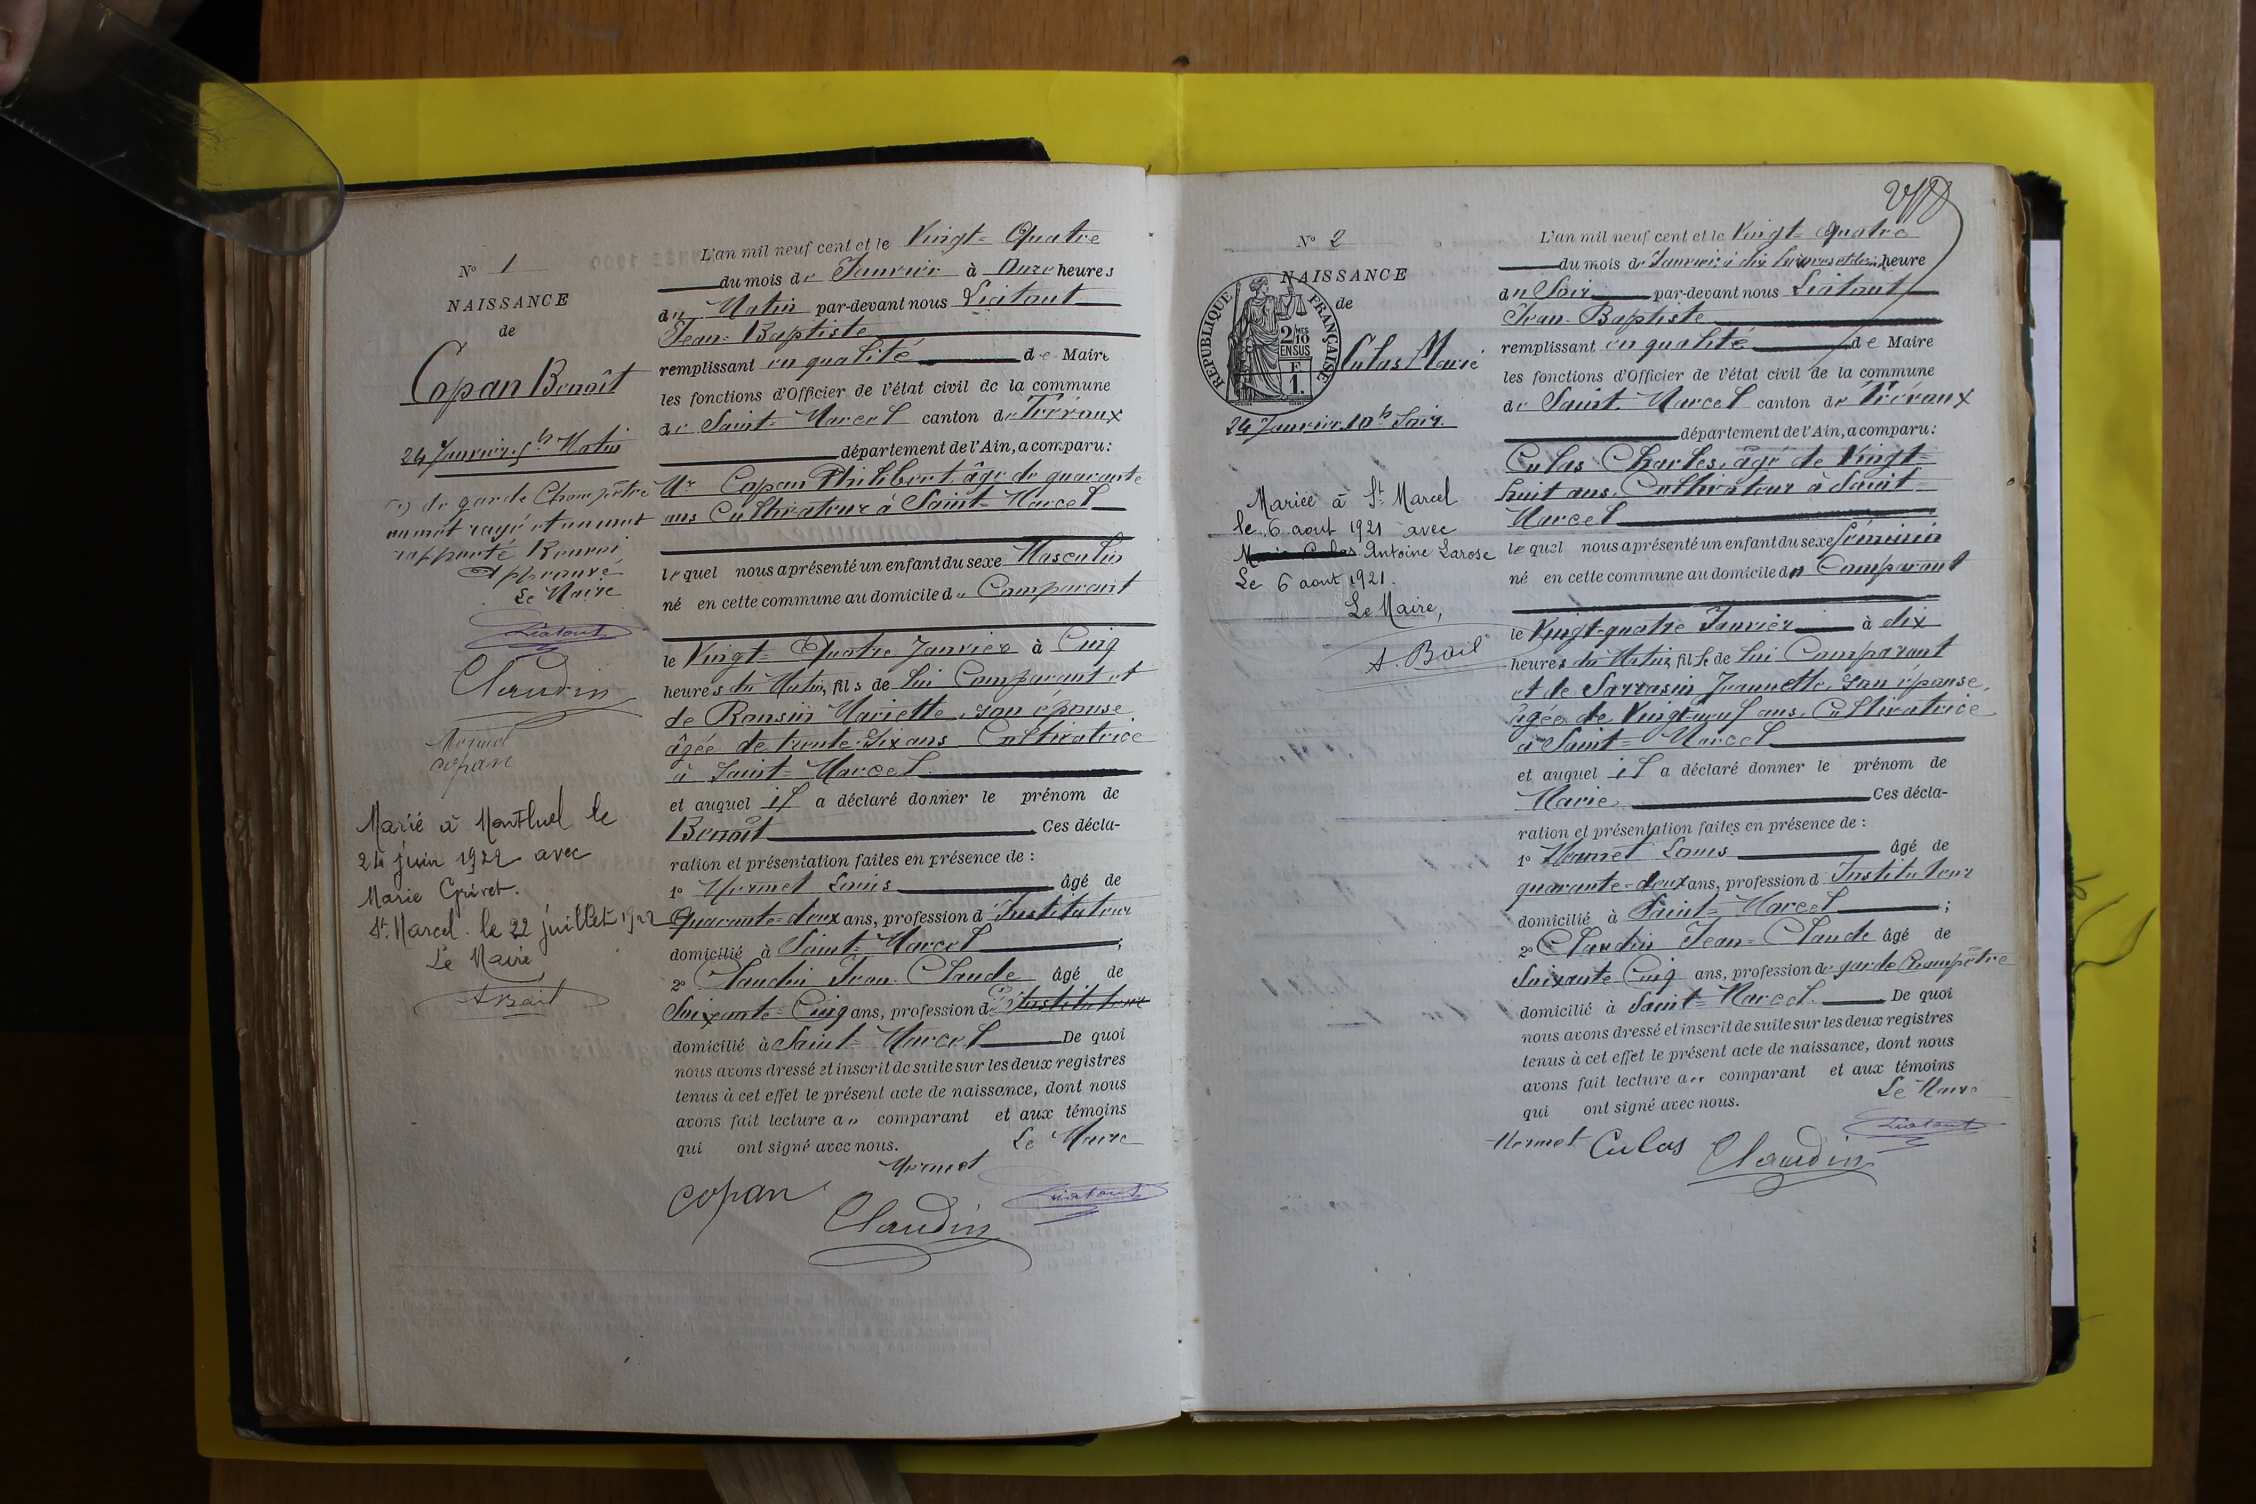 N° 1
NAISSANCE
de
Copan Benoît
24 Janvier 5 hs Matin
(1) de garde Champêtre
un mot rayé et un mot
rapporté Renvoi
Approuvé
Le Maire
Liatout
Claudin
Mermet
copan
Marié à Montluel le
24 juin 1922 avec
Marie Grivet.
St. Marcel. le 22 juillet 1922
Le Maire
A Bail
L'an mil neuf cent et le Vingt=Quatre
du mois de Janvier à Onze heures
du Matin par-devant nous Liatout
Jean=Baptiste
remplissant en qualité de Maire
les fonctions d'Officier de l'état civil de la commune
de Saint=Marcel canton de Trévoux
département de l'Ain, a comparu:
Mr Copan Philibert, âgé de quarante
ans Cultivateur à Saint=Marcel
lequel nous a présenté un enfant du sexe Masculin
né en cette commune au domicile du Comparant
le Vingt=Quatre Janvier à Cinq
heures du Matin, fils de lui Comparant et
de Ronsin Mariette, son épouse
âgée de trente-Six ans Cultivatrice
à Saint=Marcel
et auquel il a déclaré donner le prénom de
Benoît Ces décla-
ration et présentation faites en présence de :
1° Mermet Louis âgé de
Quarante=deux ans, profession d'Instituteur
domicilié à Saint=Marcel ;
2° Claudin Jean-Claude âgé de
Soixante=Cinq ans, profession d (1) Instituteur
domicilié à Saint=Marcel De quoi
nous avons dressé et inscrit de suite sur les deux registres
tenus à cet effet le présent acte de naissance, dont nous
avons fait lecture au comparant et aux témoins
qui ont signé avec nous.
Le Maire
Mermet
copan
Claudin
Liatout
N° 2
NAISSANCE
de
RÉPUBLIQUE FRANÇAISE
2/10 MES
EN SUS
F
1.
Culas Marie
24 Janvier 10 hs Soir
Mariée à St. Marcel
le 6 aout 1921 avec
Antoine Larose
Le 6 aout 1921.
Le Maire,
A. Bail
L'an mil neuf cent et le Vingt=Quatre
du mois de Janvier à dix heures et demie heure
du Soir par-devant nous Liatout
Jean-Baptiste
remplissant en qualité de Maire
les fonctions d'Officier de l'état civil de la commune
de Saint=Marcel canton de Trévoux
département de l'Ain, a comparu:
Culas Charles, âgé de Vingt=
huit ans, Cultivateur à Saint=
Marcel
lequel nous a présenté un enfant du sexe féminin
né en cette commune au domicile du Comparant
le Vingt-quatre Janvier à dix
heures du Matin, fille de lui Comparant
et de Sarrasin Jeannette, son épouse,
âgée de Vingt-neuf ans, Cultivatrice
à Saint=Marcel
et auquel il a déclaré donner le prénom de
Marie Ces décla-
ration et présentation faites en présence de :
1° Mermet Louis âgé de
quarante-deux ans, profession d'Instituteur
domicilié à Saint=Marcel ;
2° Claudin Jean=Claude âgé de
Soixante Cinq ans, profession de garde Champêtre
domicilié à Saint=Marcel De quoi
nous avons dressé et inscrit de suite sur les deux registres
tenus à cet effet le présent acte de naissance, dont nous
avons fait lecture au comparant et aux témoins
qui ont signé avec nous.
Le Maire
Mermet Culas Claudin
Liatout